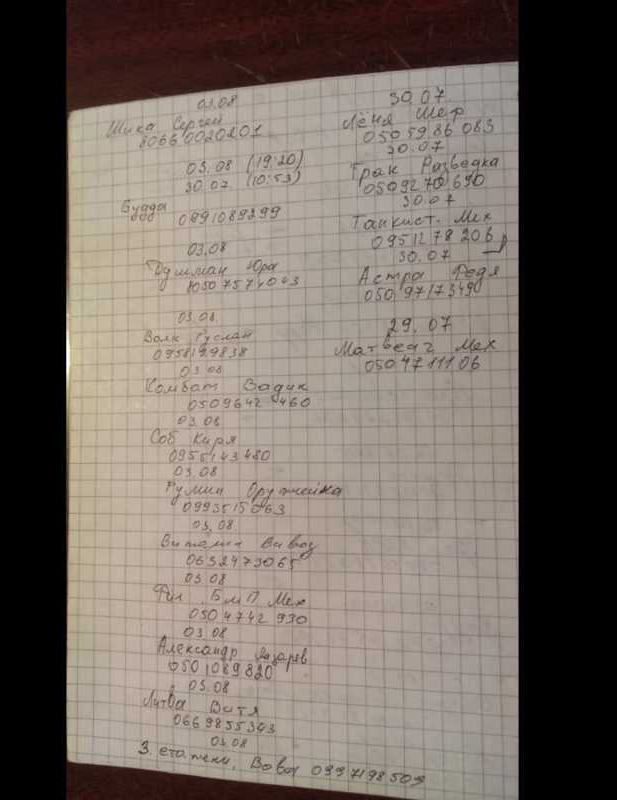 03.08
Шика Сергей
80660020201
03.08 (19:20)
30.07 (10:53)
Будда
0991089299
03.08
Душман Юра
80507574043
03.08
Волк Руслан
0958199838
03.08
Комбат Вадик
0509642460
03.08
Соб Киря
0955143480
03.08
Румын Оружейка
0993515063
03.08
Виталик Вивоз
0632473065
03.08
БМП Мех
0504742930
03.08
Александр Лазарев
0501089820
03.08
Литва Витя
0669855343
03.08
3. етажки, Вова 0997198509
30.07
Лёня Шеф
0505986083
30.07
Грак Разведка
0509270690
30.07
Танкист. Мех
0951278206
30.07
Астра Федя
0509717349
29.07
Матвеич Мех
0504711106